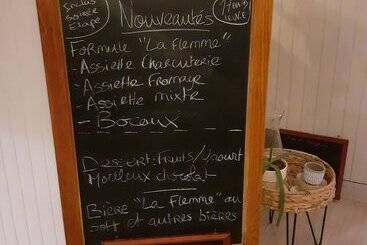 Inclus
soirée
Etape
Nouveautés
Formule "La flemme"
- Assiette Charcuterie
- Assiette fromage
- Assiette mixte
- Bocaux
Dessert: fruits / yaourt
Moelleux chocolat
Bière "La Flemme" au
et autres bières